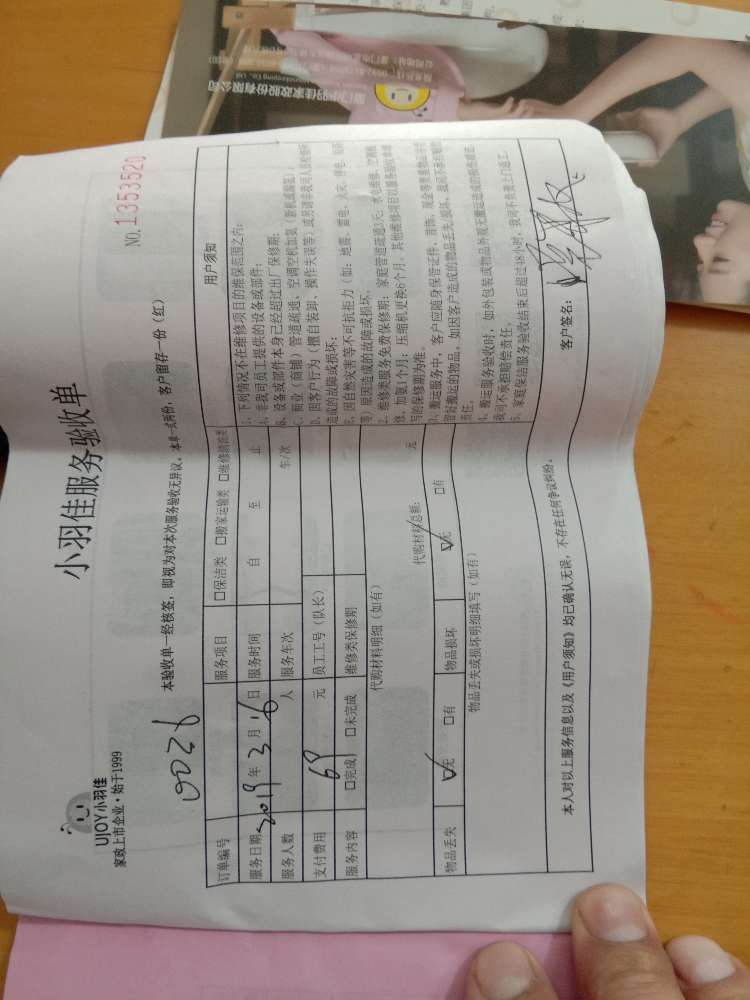 UJOY小羽佳
家政上市企业·始于1999
小羽佳服务验收单
NO. 1353520
0026
本验收单一经核签，即视为对本次服务验收无异议。本单一式两份，客户留存一份（红）
订单编号
服务项目 □保洁类 □搬家运输类 □维修清洗类
服务日期 2019年3月16日 服务时间 自 至 止
服务人数 人 服务车次 车/次
支付费用 69 元 员工工号（队长）
服务内容 □完成 □未完成 维修类保修期
代购材料明细（如有）
代购材料总额： 元
物品丢失 ☑无 □有 物品损坏 ☑无 □有
物品丢失或损坏明细填写（如有）
用户须知
1、下列情况不在维修项目的维保范围之内：
A、非我司员工提供的设备或部件；
B、设备或部件本身已经超过出厂保修期；
C、商业（商铺）管道疏通、空调空机加氨（新机或漏氨）；
D、因客户行为（擅自装卸、操作失误等）或另请非我司人员检修所
造成的故障或损坏；
E、因自然灾害等不可抗拒力（如：地震、雷电、火灾、停电、电压
等）原因造成的故障或损坏。
2、维修类服务免费保修期：家庭管道疏通3天；水电维修、空调检
修、加氨1个月；压缩机更换6个月。其他维修项目以服务验收单填
写的保修期为准。
3、搬运服务中，客户应随身保管证件、首饰、现金等贵重物品并看
管好搬运的物品，如因客户造成的物品丢失/损坏，我司不承担赔偿
责任。
4、搬运服务验收时，如外包装或物品外观无搬运造成的损坏痕迹，
我司不承担赔偿责任。
5、家庭保洁服务验收结束后超过48小时，我司不负责上门返工。
本人对以上服务信息以及《用户须知》均已确认无误，不存在任何争议纠纷。
客户签名：
厦门小羽佳家政股份有限公司